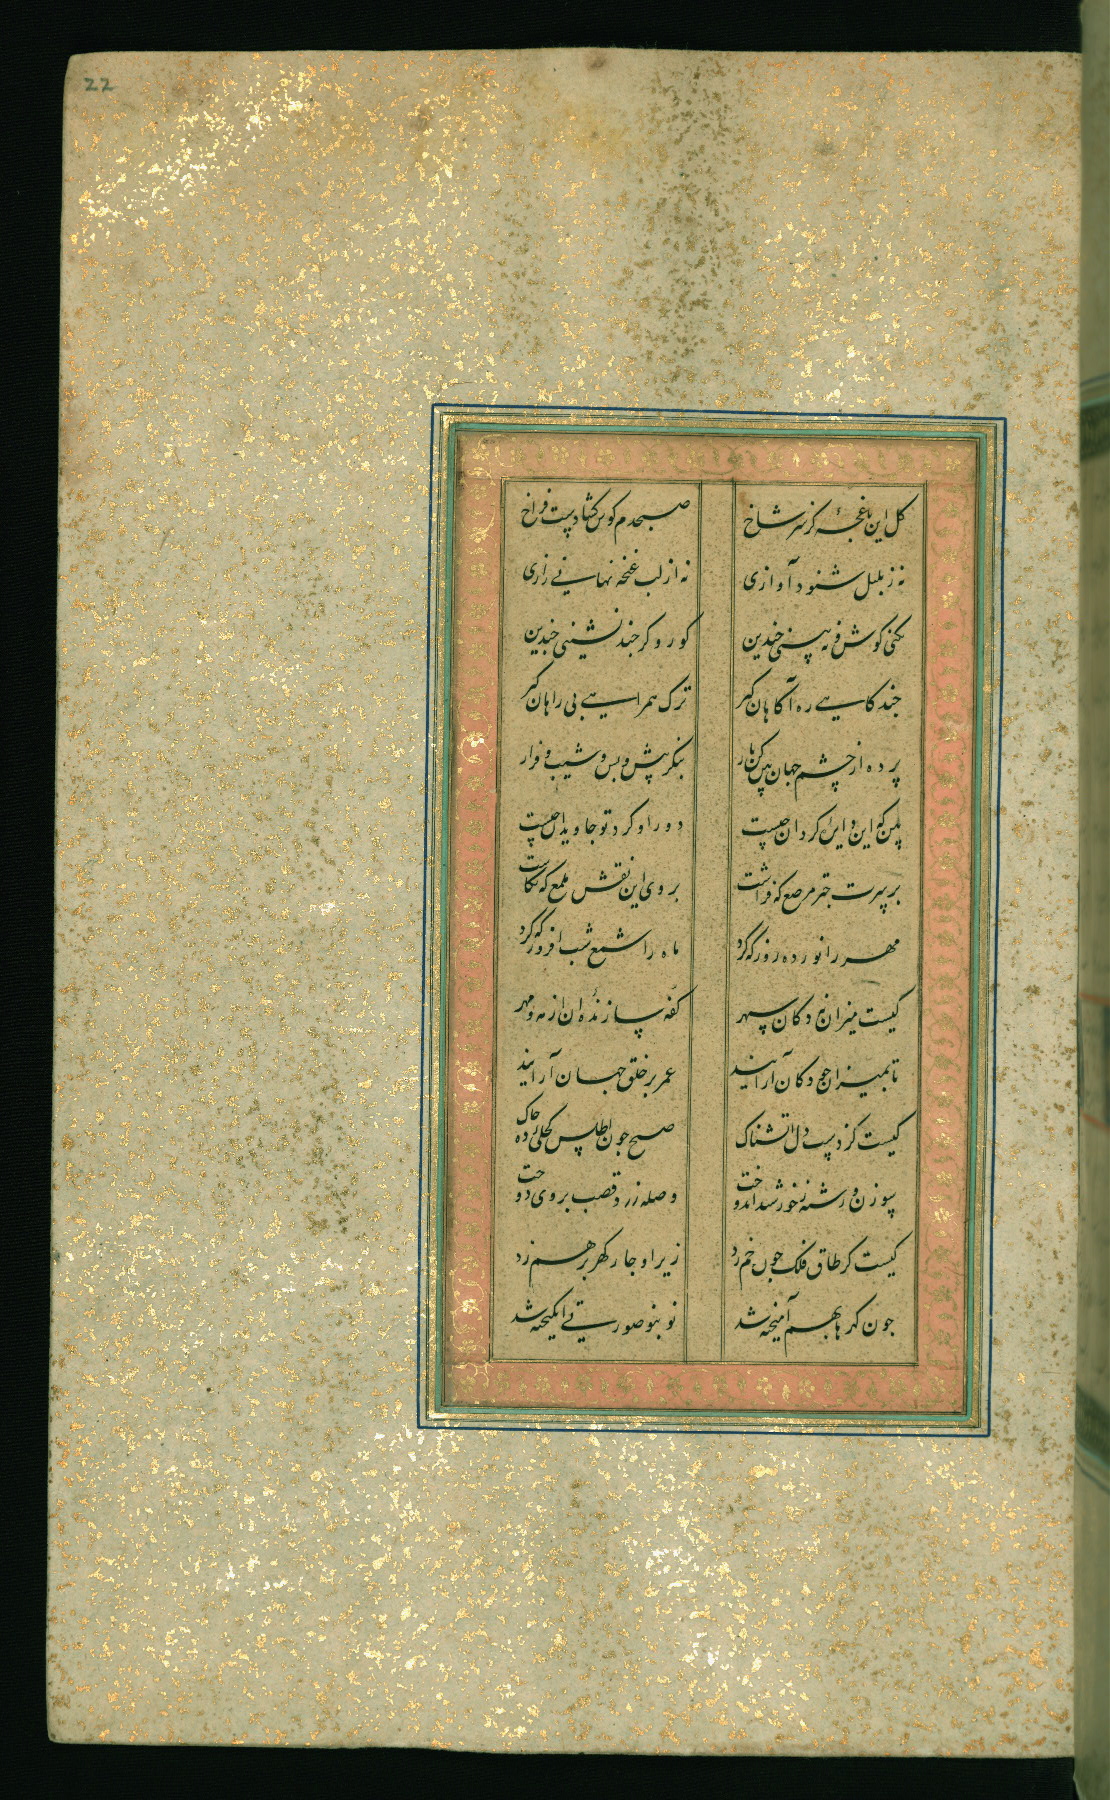 22
گل این باغچه کز سر شاخ صبحدم گوش گشادست فراخ
نه ز بلبل شنود آوازی نه از لب غنچه نهانی رازی
نکنی گوش و نه بینی چندین کور و کر چند نشینی چندین
چند گاهی ره آگاهان گیر ترک همراهی بی راهان گیر
پرده از چشم جهان بین کن باز بنگر پیش و پس و شیب و فراز
این گردان چیست دور او گرد تو جاویدان چیست
بر سرت چتر مرصع که فراشت بر روی این نقش ملمع که نگاشت
مهر را نور ده روز که کرد ماه را شمع شب افروز که کرد
کیست میزان نه دکان سپهر کفه سازنده آن از مه و مهر
تا بمیزان چو دکان آرایند عمر بر خلق جهان آرایند
کیست کز دست دل آتشناک صبح چون اطلس کحلی زده چاک
سوزن و رشته ز خورشید اندوخت وصله زرد قصب بر وی دوخت
کیست کز طاق فلک چون خم زد زیر او چار گهر بر هم زد
چون گهرها بهم آمیخته شد نو بنو صورتی انگیخته شد